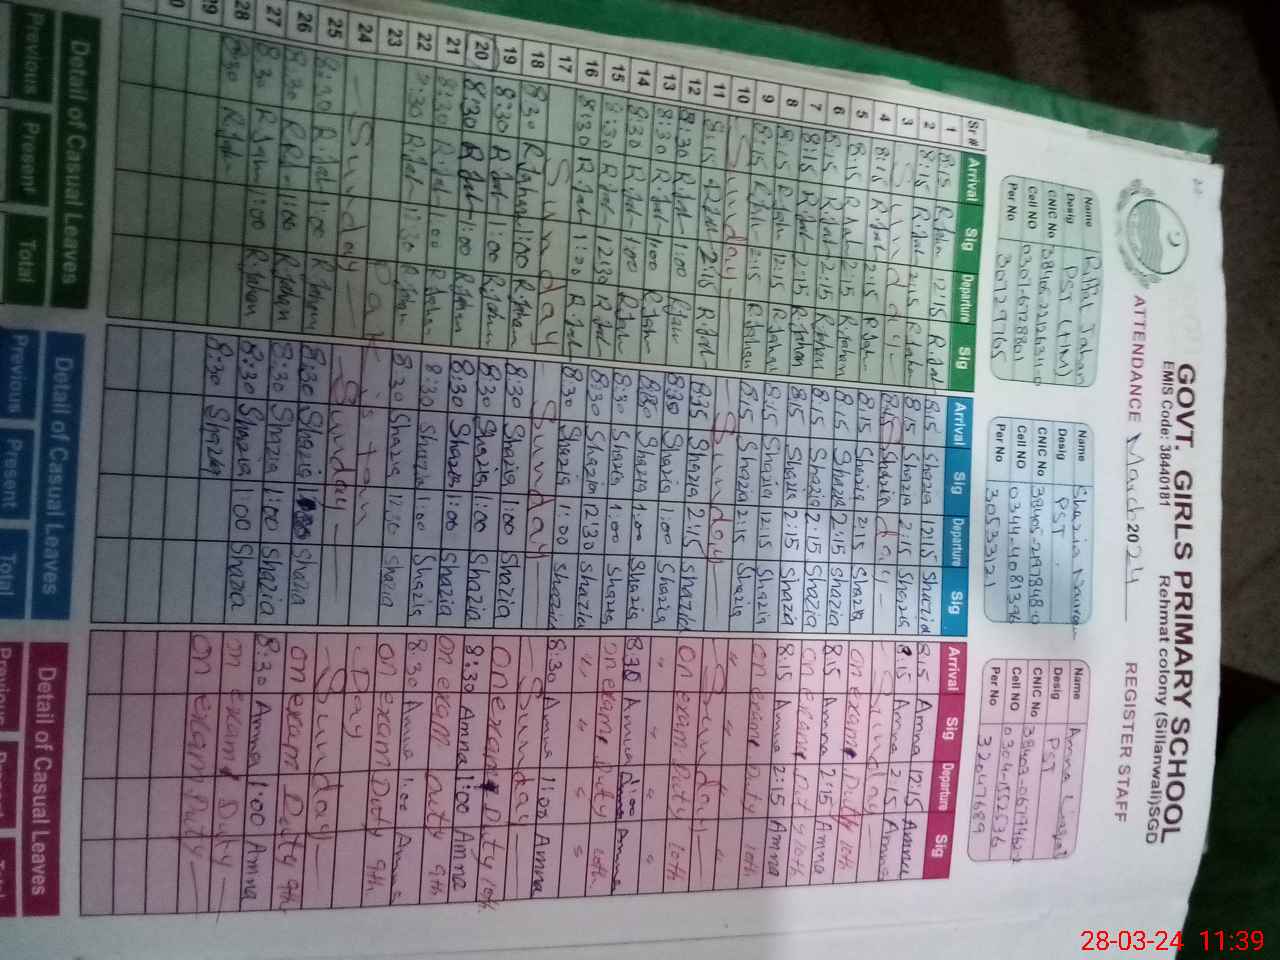 GOVT. GIRLS PRIMARY SCHOOL
EMIS Code: 38440181
Rehmat colony (Sillanwali)SGD
ATTENDANCE March 2024
REGISTER STAFF
Name Riffat Jahan
Desig PST (HM)
CNIC No
Cell NO
Per No 30729765
Name Shazia
Desig PST
CNIC No
Cell NO 0344-4081396
Per No 30533321
Name Amna
Desig PST
CNIC No
Cell NO
Per No
Sr # Arrival Sig Departure Sig Arrival Sig Departure Sig Arrival Sig Departure Sig
1 8:15 R.Jahan 12:15 R.Jah 8:15 Shazia 12:15 Shazia 8:15 Amna 12:15 Amna
2 8:15 R.Jah 2:15 R.Jahan 8:15 Shazia 2:15 Shazia 8:15 Amna 2:15 Amna
3 Sunday Sunday Sunday
4 8:15 R.Jah 2:15 R.Jah 8:15 Shazia 2:15 Shazia on exam Duty 10th
5 8:15 R.Jah 2:15 R.Jahan 8:15 Shazia 2:15 Shazia 8:15 Amna 2:15 Amna
6 8:15 R.Jah 2:15 R.Jahan 8:15 Shazia 2:15 Shazia on exam Duty 10th
7 8:15 R.Jah 2:15 R.Jahan 8:15 Shazia 2:15 Shazia 8:15 Amna 2:15 Amna
8 8:15 R.Jahan 12:15 R.Jahan 8:15 Shazia 12:15 Shazia on exam Duty 10th
9 8:15 R.Jah 2:15 R.Jahan 8:15 Shazia 2:15 Shazia " " "
10 Sunday Sunday Sunday
11 8:15 R.Jah 2:15 R.Jah 8:15 Shazia 2:15 Shazia on exam Duty 10th
12 8:30 R.Jah 1:00 R.Jah 8:30 Shazia 1:00 Shazia " " "
13 8:30 R.Jah 1:00 R.Jahan 8:30 Shazia 1:00 Shazia 8:30 Amna 1:00 Amna
14 8:30 R.Jah 1:00 R.Jah 8:30 Shazia 1:00 Shazia on exam Duty 10th
15 8:30 R.Jah 12:30 R.Jah 8:30 Shazia 12:30 Shazia " " "
16 8:30 R.Jah 1:00 R.Jah 8:30 Shazia 1:00 Shazia 8:30 Amna 1:00 Amna
17 Sunday Sunday Sunday
18 8:30 R.Jahan 1:00 R.Jahan 8:30 Shazia 1:00 Shazia on exam Duty 10th
19 8:30 R.Jah 1:00 R.Jahan 8:30 Shazia 1:00 Shazia 8:30 Amna 1:00 Amna
20 8:30 R.Jah 1:00 R.Jahan 8:30 Shazia 1:00 Shazia on exam Duty 9th
21 8:30 R.Jah 1:00 R.Jahan 8:30 Shazia 1:00 Shazia 8:30 Amna 1:00 Amna
22 8:30 R.Jah 12:30 R.Jahan 8:30 Shazia 12:30 Shazia on exam Duty 9th
23 Pakistan Day
24 Sunday Sunday Sunday
25 8:30 R.Jah 1:00 8:30 Shazia Shazia on exam Duty 9th
26 8:30 1:00 R.Jahan 8:30 Shazia 1:00 Shazia 8:30 Amna 1:00 Amna
27 8:30 R.Jahan 1:00 R.Jahan 8:30 Shazia 1:00 Shazia on exam Duty
28 8:30 R.Jah 8:30 Shazia on exam Duty
29
Detail of Casual Leaves Detail of Casual Leaves Detail of Casual Leaves
Previous Present Total Previous Present Total Previous
28-03-24 11:39